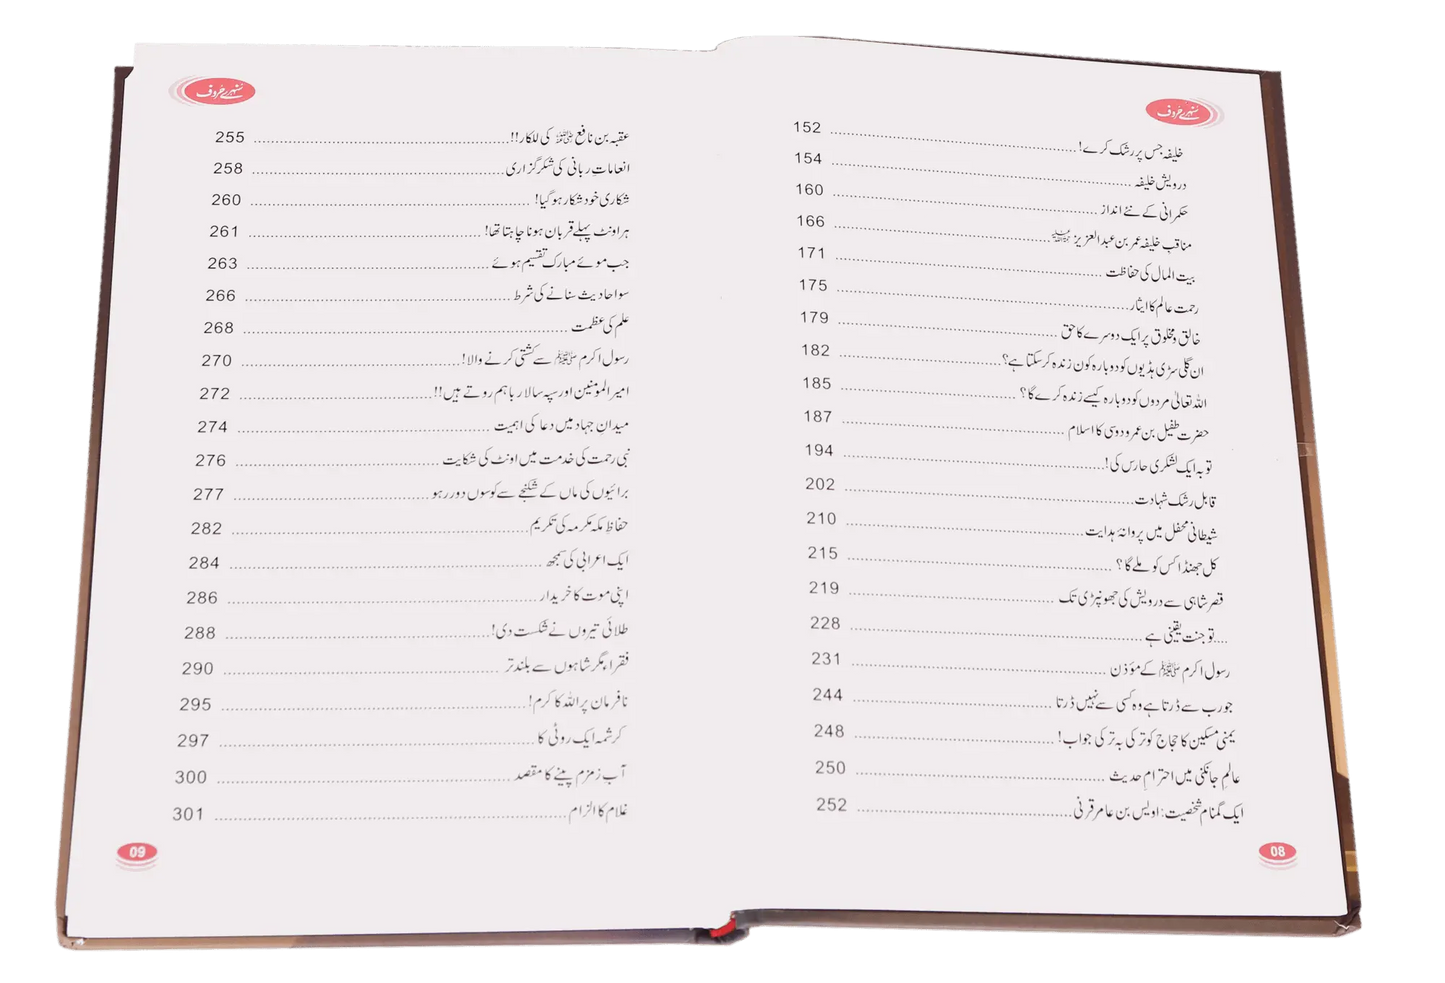 سنہرے حروف
خلیفہ جس پر رشک کرے! 152
درویش خلیفہ 154
حکمرانی کے نئے انداز 160
مناقبِ خلیفہ عمر بن عبدالعزیز رحمہ اللہ 166
بیت المال کی حفاظت 171
رحمت عالم کا ایثار 175
خالق و مخلوق پر ایک دوسرے کا حق 179
ان گلی سڑی ہڈیوں کو دوبارہ کون زندہ کرسکتا ہے؟ 182
اللہ تعالیٰ مردوں کو دوبارہ کیسے زندہ کرے گا؟ 185
حضرت طفیل بن عمرو دوسی کا اسلام 187
توبہ ایک لشکری حارس کی! 194
قابل رشک شہادت 202
شیطانی محفل میں پروانۂ ہدایت 210
کل جھنڈا کس کو ملے گا؟ 215
قصر شاہی سے درویش کی جھونپڑی تک 219
....تو جنت یقینی ہے 228
رسول اکرم ﷺ کے مؤذن 231
جو رب سے ڈرتا ہے وہ کسی سے نہیں ڈرتا 244
یمنی مسکین کا حجاج کو ترکی بہ ترکی جواب! 248
عالمِ جانکنی میں احترامِ حدیث 250
ایک گمنام شخصیت: اویس بن عامر قرنی 252
08
سنہرے حروف
عقبہ بن نافع کی للکار!! 255
انعاماتِ ربانی کی شکرگزاری 258
شکاری خود شکار ہوگیا! 260
ہر اونٹ پہلے قربان ہونا چاہتا تھا! 261
جب موئے مبارک تقسیم ہوئے 263
سو احادیث سنانے کی شرط 266
علم کی عظمت 268
رسول اکرم ﷺ سے کشتی کرنے والا! 270
امیر المؤمنین اور سپہ سالار باہم روتے ہیں!! 272
میدانِ جہاد میں دعا کی اہمیت 274
نبی رحمت کی خدمت میں اونٹ کی شکایت 276
برائیوں کی ماں کے شکنجے سے کوسوں دور رہو 277
حفاظِ مکہ مکرمہ کی تکریم 282
ایک اعرابی کی سمجھ 284
اپنی موت کا خریدار 286
طلائی تیروں نے شکست دی! 288
فقراء مگر شاہوں سے بلند تر 290
نافرمان پر اللہ کا کرم! 295
کرشمہ ایک روٹی کا 297
آب زمزم پینے کا مقصد 300
غلام کا الزام 301
09